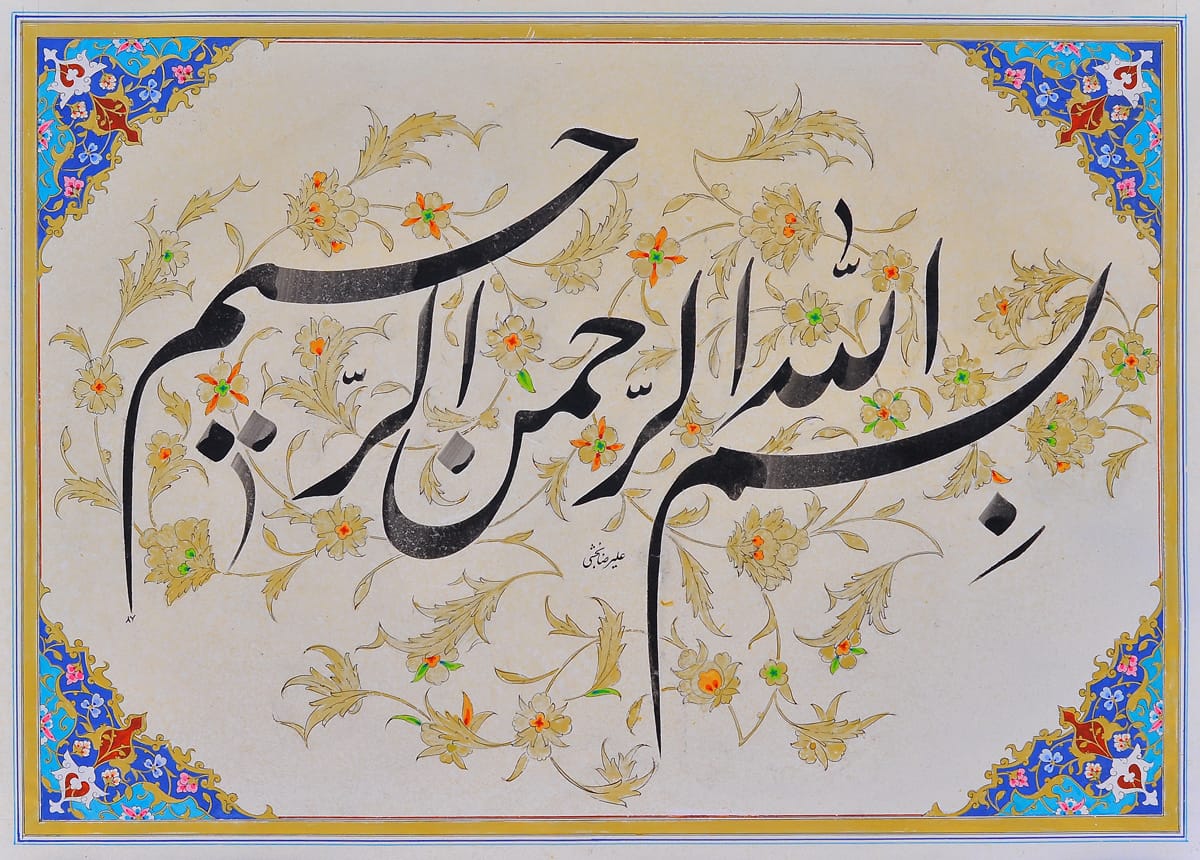 بِسم الله الرّحمن الرّحیم
علیرضا بخشی
۸۷